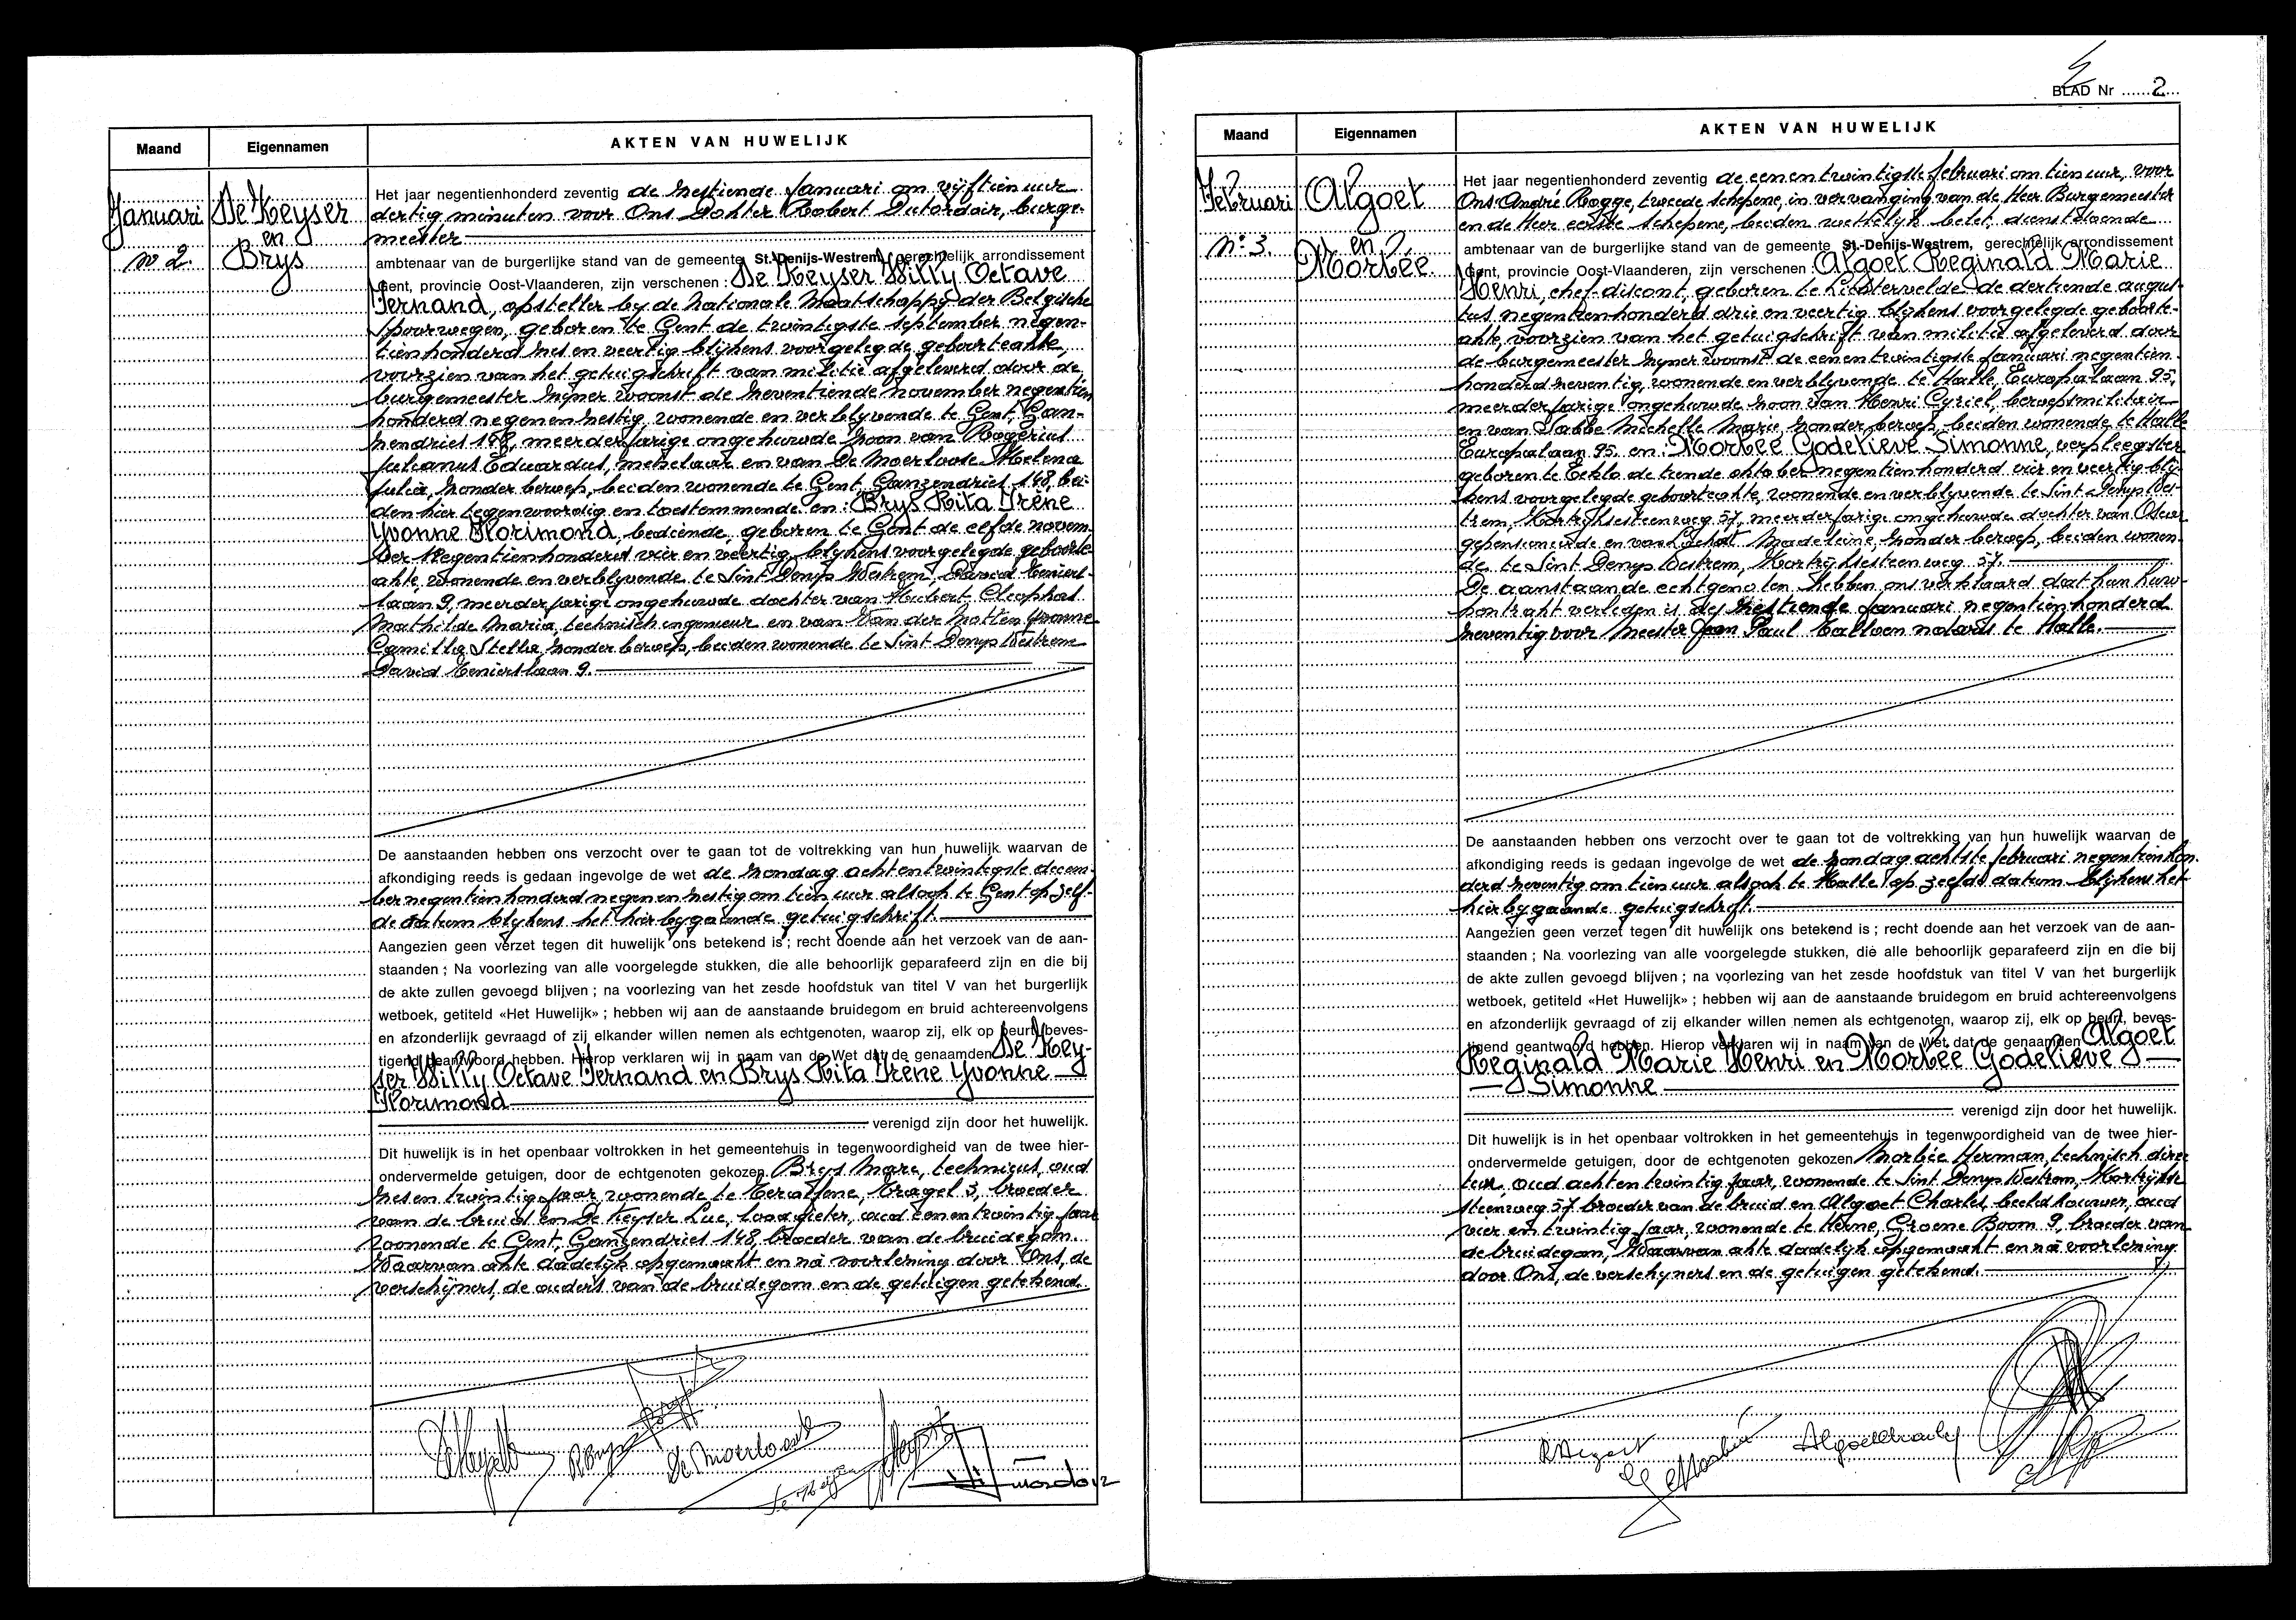 Maand
Eigennamen
AKTEN VAN HUWELIJK
Januari
no 2.
De Keyser
en
Brys
Het jaar negentienhonderd zeventig de zestiende Januari om vijftien uur
dertig minuten voor Ons Dokter Robert Dutordoir, burge-
meester
ambtenaar van de burgerlijke stand van de gemeente St.-Denijs-Westrem, gerechtelijk arrondissement
Gent, provincie Oost-Vlaanderen, zijn verschenen : De Keyser Willy Octave
Fernand, opsteller by de Nationale Maatschappy der Belgische
Spoorwegen, geboren te Gent de twintigste september negen-
tienhonderd zes en veertig blijkens voorgelegde geboorteakte,
voorzien van het getuigschrift van militie afgeleverd door de
burgemeester zyner woonst de zeventiende november negentien
honderd negenenzestig, wonende en verblyvende te Gent, Gan-
zendries 148, meerderjarige ongehuwde zoon van Rogerius
Julianus Eduardus, metselaar en van De Moerloose Helena
Julia, zonder beroep, beiden wonende te Gent, Ganzendries 148, bei-
den hier tegenwoordig en toestemmende en : Brys Rita Irène
Yvonne Florimond, bediende, geboren te Gent de elfde novem-
ber negentienhonderd vier en veertig, blykens voorgelegde geboorte-
akte, wonende en verblyvende te Sint Denys Westrem, David Teniers-
laan 9, meerderjarige ongehuwde dochter van Hubert Cleophas
Mathilde Maria, technisch ingenieur en van Van der Motten Yvonne
Camilla Stella, zonder beroep, beiden wonende te Sint Denys Westrem
David Tenierslaan 9.
De aanstaanden hebben ons verzocht over te gaan tot de voltrekking van hun huwelijk waarvan de
afkondiging reeds is gedaan ingevolge de wet de zondag achtentwintigste decem-
ber negentienhonderd negenenzestig om tien uur alsook te Gent op zelf-
de datum blykens het hierbygaande getuigschrift.
Aangezien geen verzet tegen dit huwelijk ons betekend is ; recht doende aan het verzoek van de aan-
staanden ; Na voorlezing van alle voorgelegde stukken, die alle behoorlijk geparafeerd zijn en die bij
de akte zullen gevoegd blijven ; na voorlezing van het zesde hoofdstuk van titel V van het burgerlijk
wetboek, getiteld «Het Huwelijk» ; hebben wij aan de aanstaande bruidegom en bruid achtereenvolgens
en afzonderlijk gevraagd of zij elkander willen nemen als echtgenoten, waarop zij, elk op beurt, beves-
tigend geantwoord hebben. Hierop verklaren wij in naam van de Wet dat de genaamden De Key-
ser Willy Octave Fernand en Brys Rita Irène Yvonne
Florimond
verenigd zijn door het huwelijk.
Dit huwelijk is in het openbaar voltrokken in het gemeentehuis in tegenwoordigheid van de twee hier-
ondervermelde getuigen, door de echtgenoten gekozen Brys Marc, technicus, oud
zesentwintig jaar, wonende te Kragel 3, broeder
van de bruid en De Keyser Luc, loodgieter, oud eenentwintig jaar
wonende te Gent, Ganzendries 148, broeder van de bruidegom.
Waarvan akte dadelyk opgemaakt en na voorlezing door Ons, de
verschijners, de ouders van de bruidegom en de getuigen getekend.
BLAD Nr 2
Maand
Eigennamen
AKTEN VAN HUWELIJK
Februari
no 3.
Algoet
en
Morbée
Het jaar negentienhonderd zeventig de eenentwintigste februari om tien uur, voor
Ons André Rogge, tweede schepene, in vervanging van de Heer Burgemeester
en de Heer eerste schepene, beiden wettelyk belet, dienstdoende
ambtenaar van de burgerlijke stand van de gemeente St.-Denijs-Westrem, gerechtelijk arrondissement
Gent, provincie Oost-Vlaanderen, zijn verschenen : Algoet Reginald Marie
Henri, chef-discont, geboren te Lichtervelde de dertiende augus-
tus negentienhonderd drie en veertig blijkens voorgelegde geboorte-
akte, voorzien van het getuigschrift van militie afgeleverd door
de burgemeester zyner woonst de eenentwintigste Januari negentien-
honderd zeventig, wonende en verblyvende te Halle, Europalaan 95,
meerderjarige ongehuwde zoon van Henri Cyriel, beroepsmilitair
en van Babbe Michelle Marie zonder beroep, beiden wonende te Halle
Europalaan 95. en : Morbée Godelieve Simonne, verpleegster
geboren te Eeklo de tiende oktober negentienhonderd vier en veertig bly-
kens voorgelegde geboorteakte, wonende en verblyvende te Sint Denys Wes-
trem, Kortryksesteenweg 57, meerderjarige ongehuwde dochter van Oscar
gepensioneerde en van Madeleine, zonder beroep, beiden wonen-
de te Sint Denys Westrem, Kortrijksesteenweg 57.
De aanstaande echtgenoten hebben ons verklaard dat hun huw-
kontrakt verleden is de zestiende januari negentienhonderd
zeventig voor Meester Jean Paul notaris te Halle.
De aanstaanden hebben ons verzocht over te gaan tot de voltrekking van hun huwelijk waarvan de
afkondiging reeds is gedaan ingevolge de wet de zondag achtste februari negentienhon-
derd zeventig om tien uur alsook te Halle op zelfde datum blijkens het
hierbygaande getuigschrift.
Aangezien geen verzet tegen dit huwelijk ons betekend is ; recht doende aan het verzoek van de aan-
staanden ; Na voorlezing van alle voorgelegde stukken, die alle behoorlijk geparafeerd zijn en die bij
de akte zullen gevoegd blijven ; na voorlezing van het zesde hoofdstuk van titel V van het burgerlijk
wetboek, getiteld «Het Huwelijk» ; hebben wij aan de aanstaande bruidegom en bruid achtereenvolgens
en afzonderlijk gevraagd of zij elkander willen nemen als echtgenoten, waarop zij, elk op beurt, beves-
tigend geantwoord hebben. Hierop verklaren wij in naam van de Wet dat de genaamden Algoet
Reginald Marie Henri en Morbée Godelieve
Simonne
verenigd zijn door het huwelijk.
Dit huwelijk is in het openbaar voltrokken in het gemeentehuis in tegenwoordigheid van de twee hier-
ondervermelde getuigen, door de echtgenoten gekozen Morbée Herman, technisch direk
teur, oud achtentwintig jaar, wonende te Sint Denys Westrem, Kortrijkse
steenweg 57 broeder van de bruid en Algoet Charles, beeldhouwer, oud
vier en twintig jaar, wonende te Herne, Groene Boom 9, broeder van
de bruidegom, Waarvan akte dadelyk opgemaakt en na voorlezing
door Ons, de verschyners en de getuigen getekend.